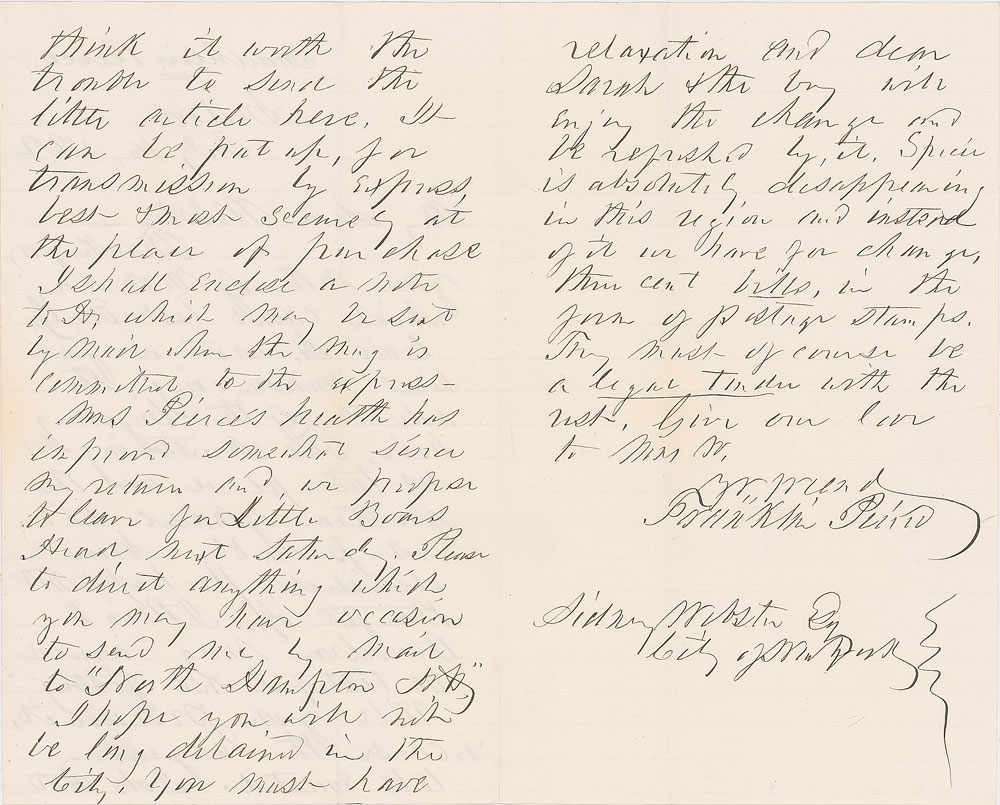 think it worth the
trouble to send the
little article here. It
can be put up, for
transmission by Express,
best & most securely at
the place of purchase
I shall enclose a note
to H, which may be sent
by mail when the mug is
committed to the express—
Mrs Pierce's health has
improved somewhat since
my return and we propose
to leave for Little Boars
Head next Saturday. Please
to direct anything which
you may have occasion
to send me by mail
to "North Hampton N.H."
I hope you will not
be long detained in the
City. You must have
relaxation and dear
Sarah & the boy will
enjoy the change and
be refreshed by, it. Specie
is absolutely disappearing
in this region and instead
of it we have for change,
three cent bills, in the
form of postage stamps.
They must of course be
a legal tender with the
rest. Give our love
to Mrs W.
Yr, friend
Franklin Pierce
Sidney Webster Esq
City of New York